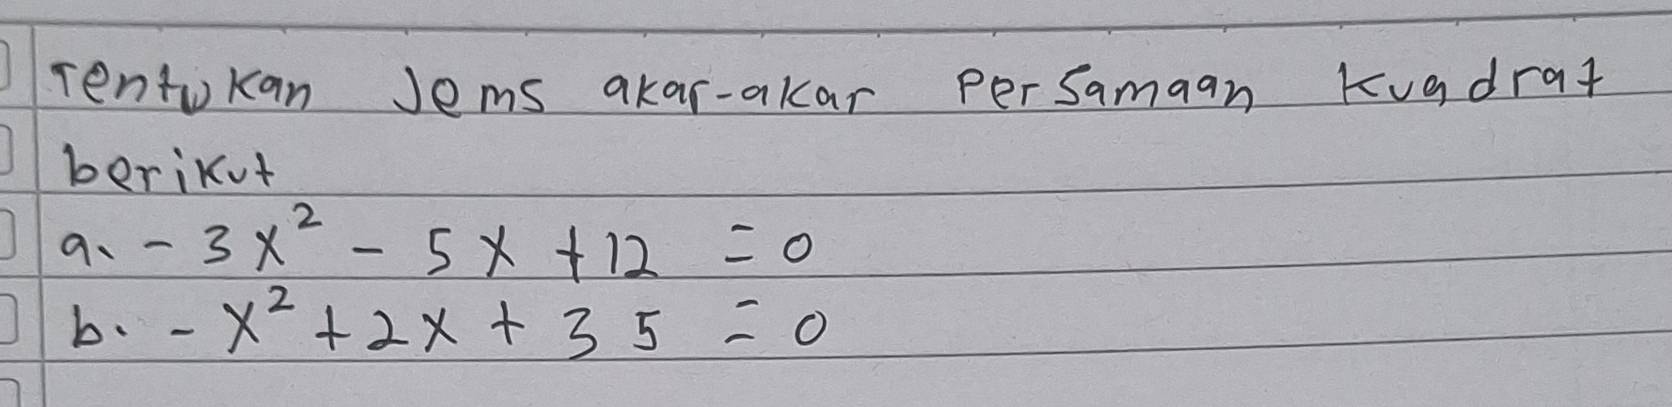 Tentukan Jems akar-akar Persamaan kuadrat
berikut
a. - 3x² - 5x + 12 = 0
b. - x² + 2x + 35 = 0